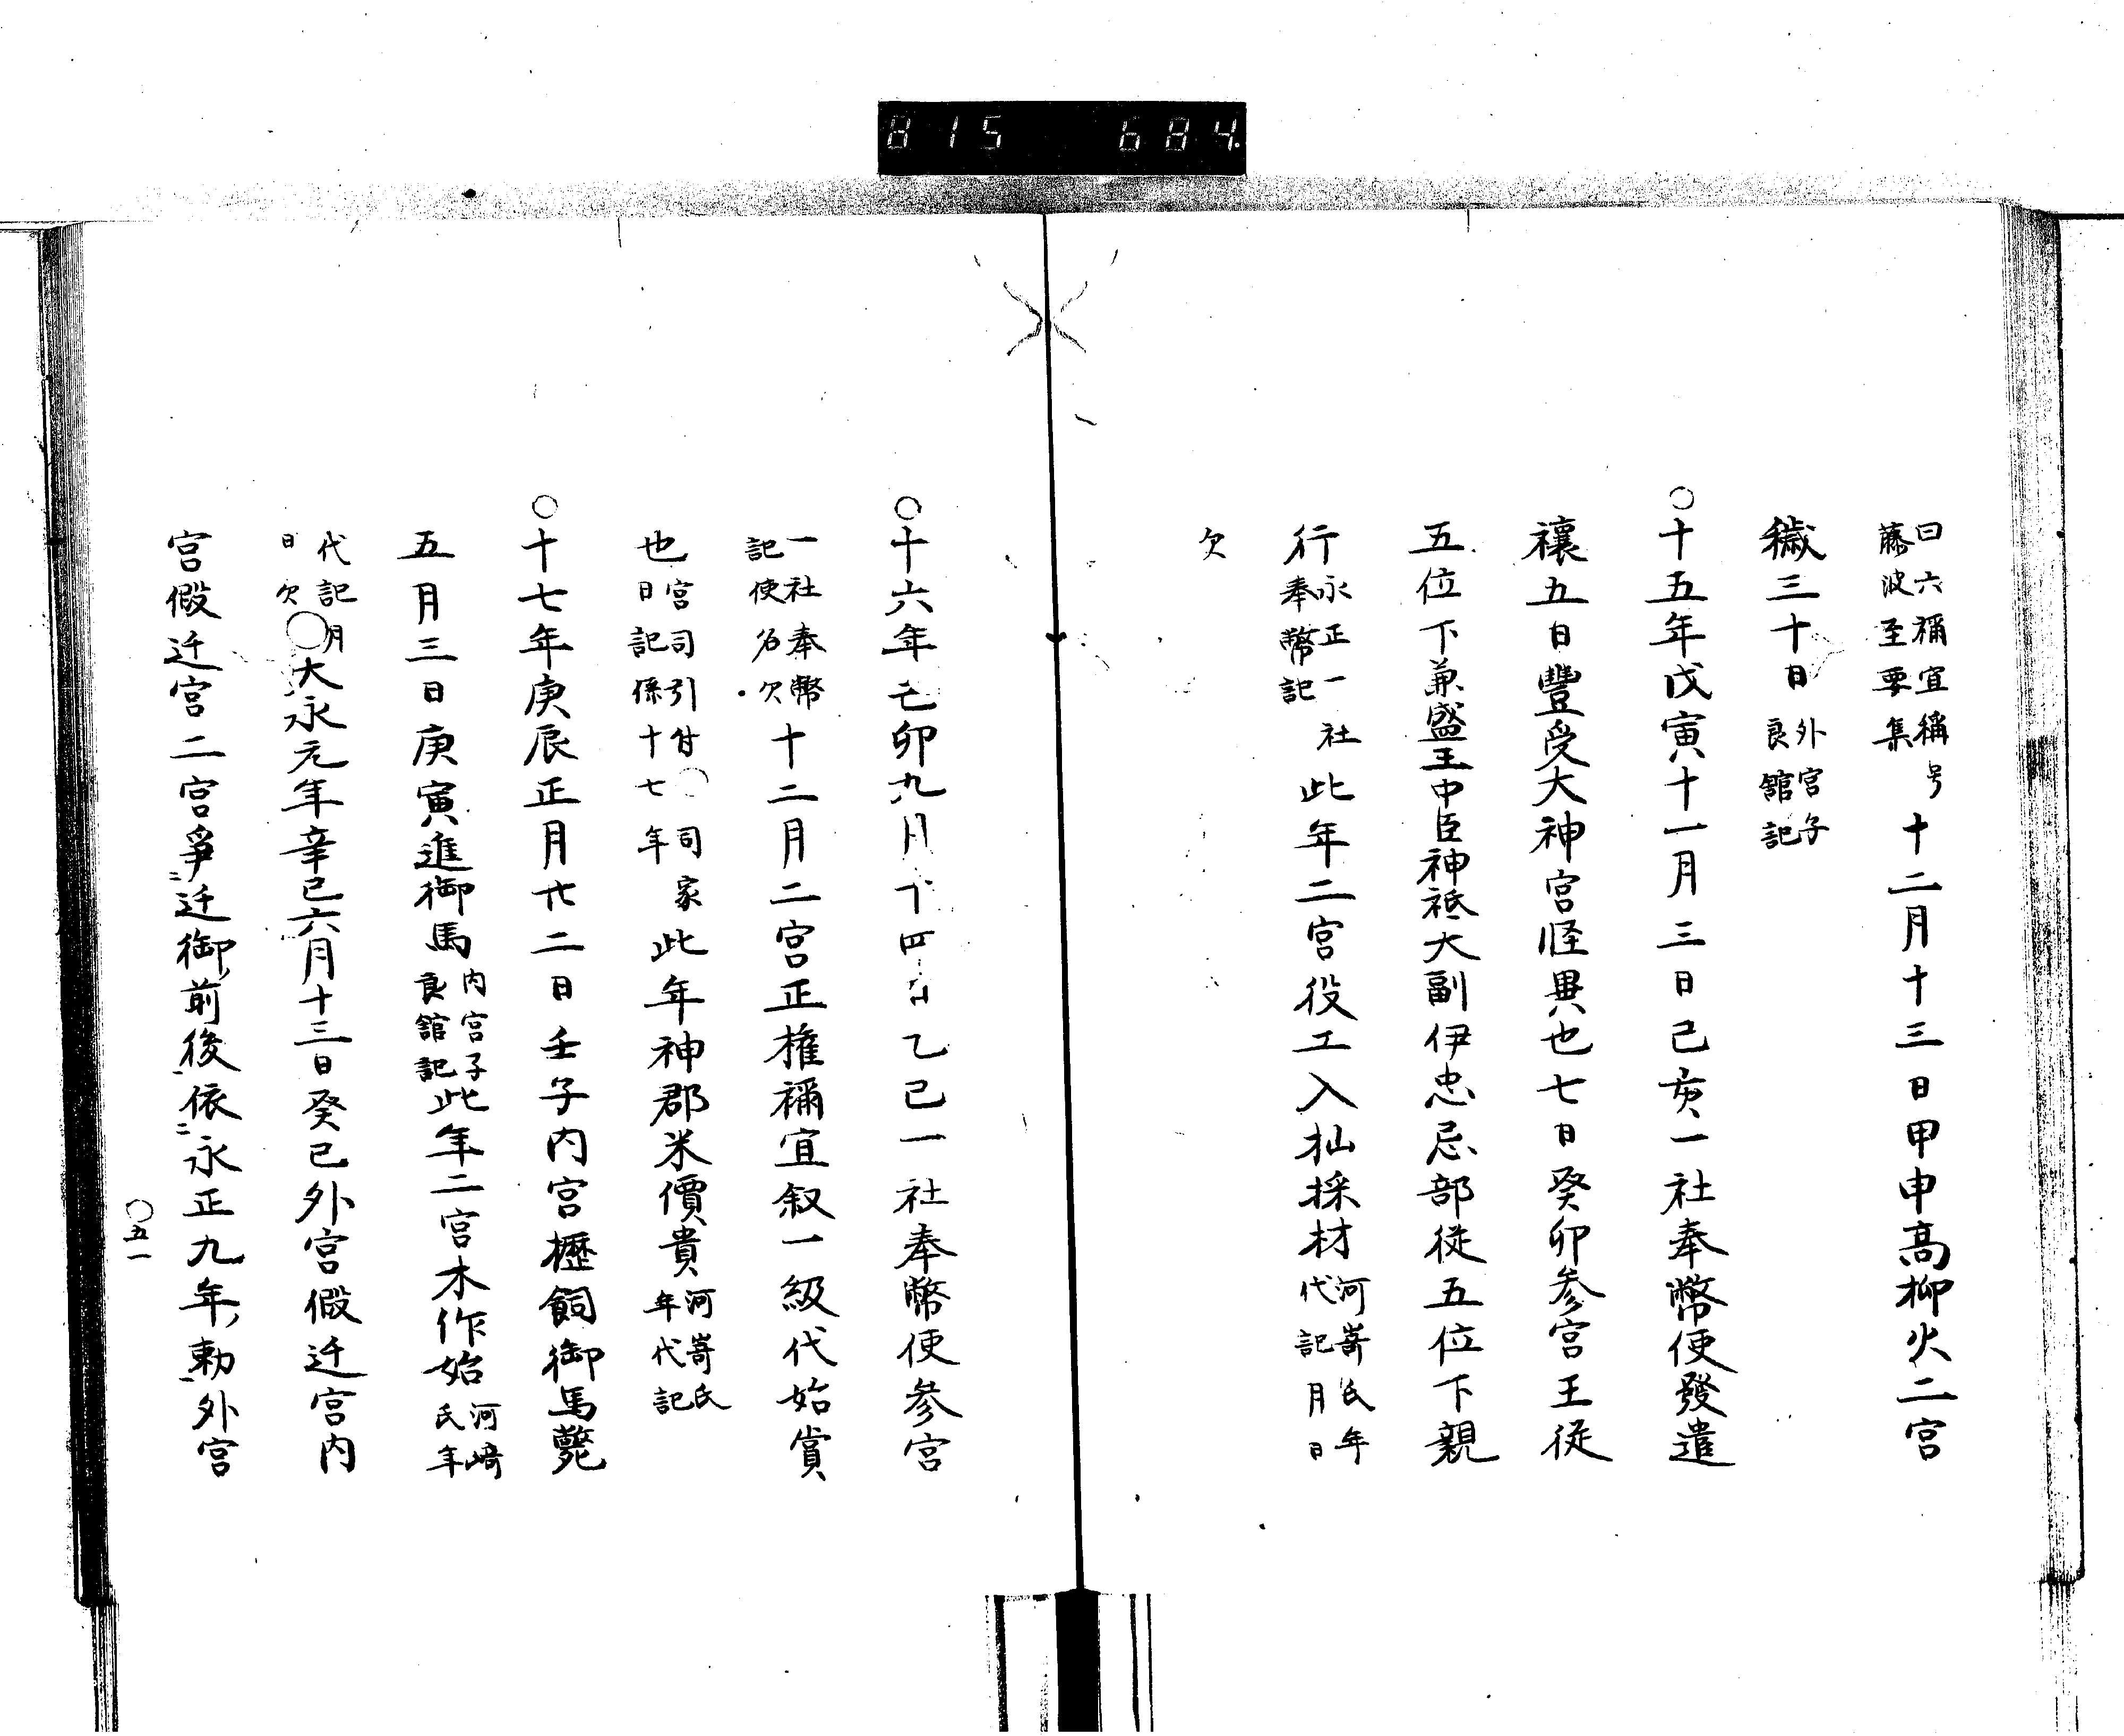 815 684.
曰六禰宜稱号
藤波至要集
十二月十三日甲申高柳火二宮
穢三十日
外宮子
良舘記
○十五年戊寅十一月三日己亥一社奉幣使發遣
禳五日豐受大神宮怪異也七日癸卯参宮王從
五位下兼盛王中臣神祇大副伊忠忌部從五位下親
行
永正一社
奉幣記
此年二宮役工入杣採材
河嵜氏年
代記月日
欠
○十六年己卯九月十四日乙巳一社奉幣使参宮
一社奉幣
記使名欠
十二月二宮正権禰宜叙一級代始賞
也
宮司引付○司家
日記係十七年
此年神郡米價貴
河嵜氏
年代記
○十七年庚辰正月廿二日壬子内宮櫪飼御馬斃
五月三日庚寅進御馬
内宮子
良舘記
此年二宮木作始
河崎
氏年
代記月
日欠
○大永元年辛巳六月十三日癸巳外宮假迁宮内
宮假迁宮二宮爭迁御前後依永正九年勅外宮
○五一